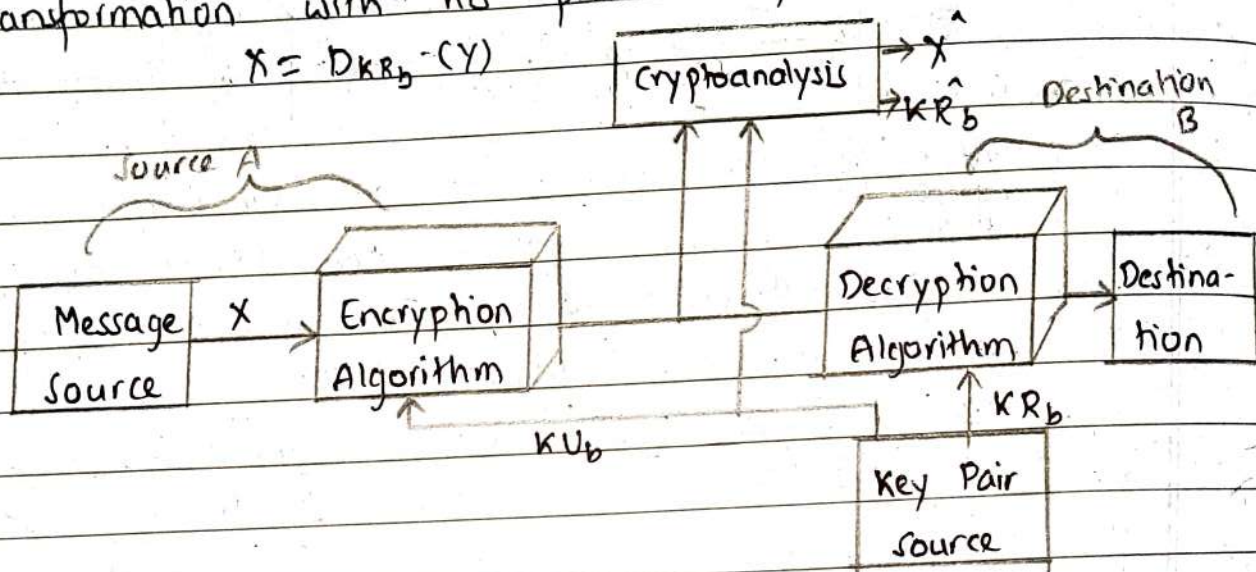 ansformation with no
X = DKRb (Y)
Cryptoanalysis
X̂
KR̂b
Destination
B
Source A
Message
Source
X
Encryption
Algorithm
Decryption
Algorithm
Destina-
tion
KUb
KRb
Key Pair
Source